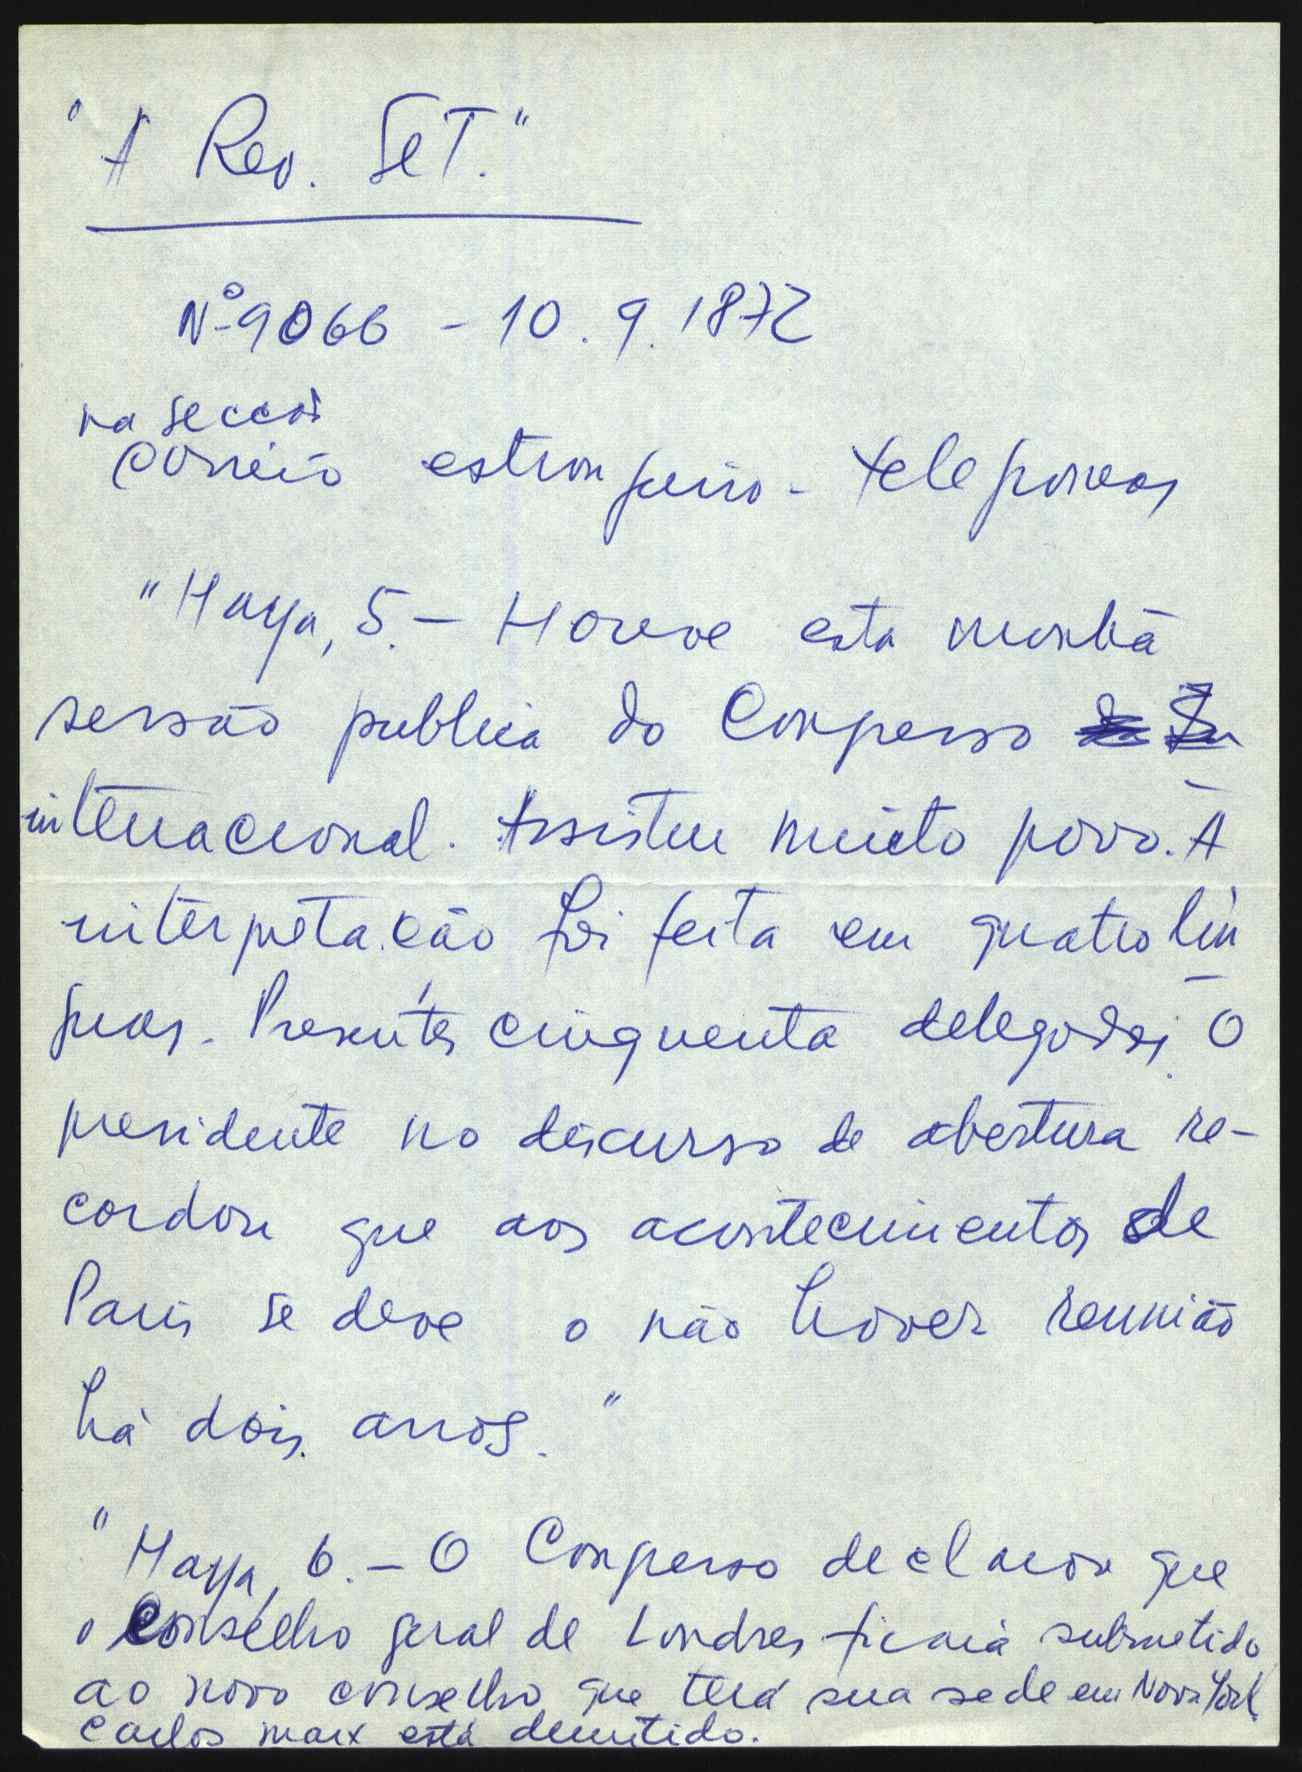 "A Rev. Set."
Nº 9066 - 10.9.1872
na secção
Correio estrangeiro - telegramas
"Haya, 5. - Houve esta manhã
sessão publica do Congresso
internacional. Assistiu muito povo. A
interpretação foi feita em quatro lín
guas. Presentes cinquenta delegados. O
presidente no discurso de abertura re-
cordou que aos acontecimentos de
Paris se deve o não haver reunião
há dois anos."
"Haya, 6. - O Congresso declarou que
o Conselho geral de Londres ficaria submetido
ao novo conselho que terá sua sede em Nova York.
Carlos Marx está demitido.